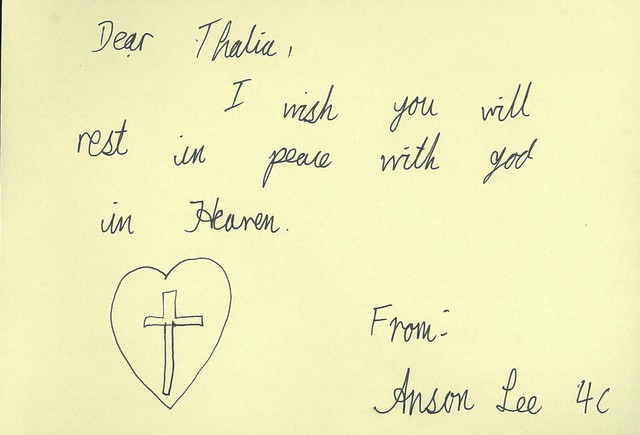 Dear Thalia,
I wish you will
rest in peace with god
in Heaven.
From:
Anson Lee 4C